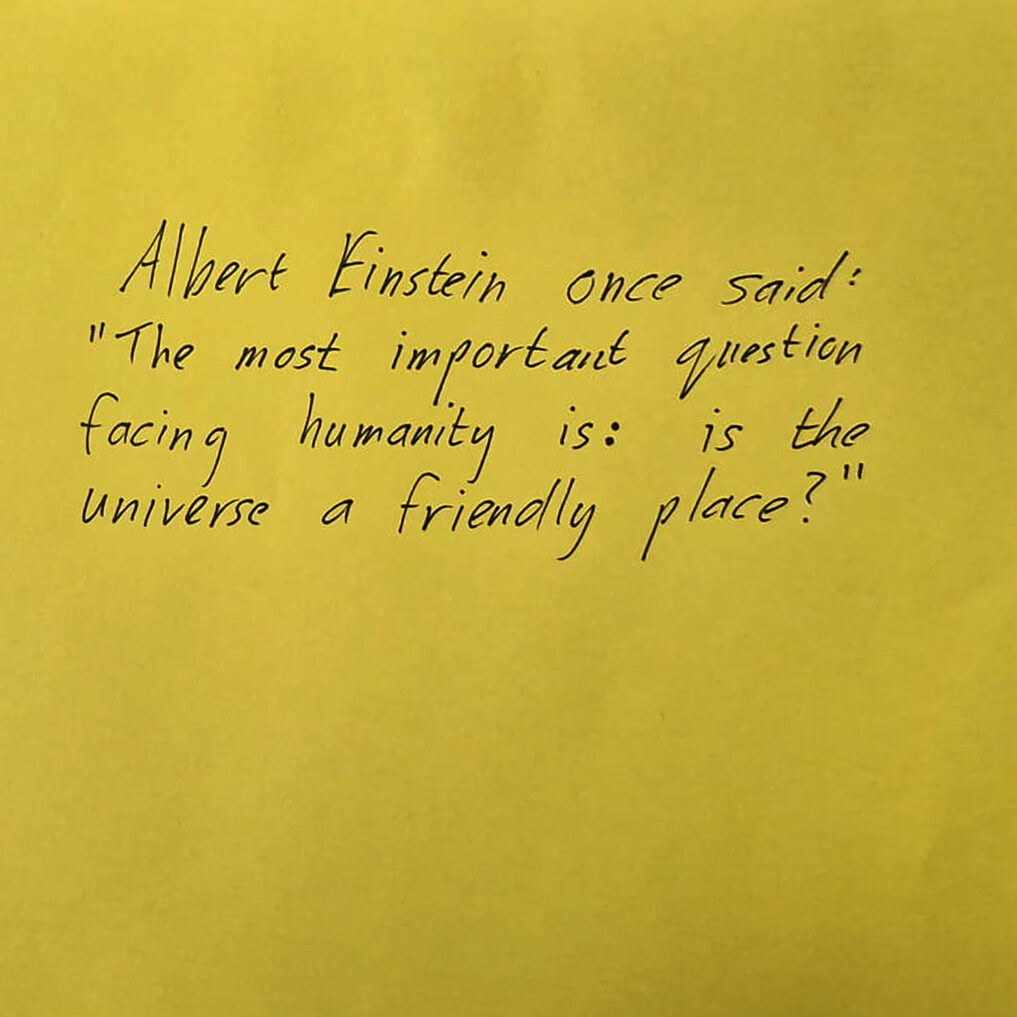 Albert Einstein once said:
"The most important question
facing humanity is: is the
universe a friendly place?"